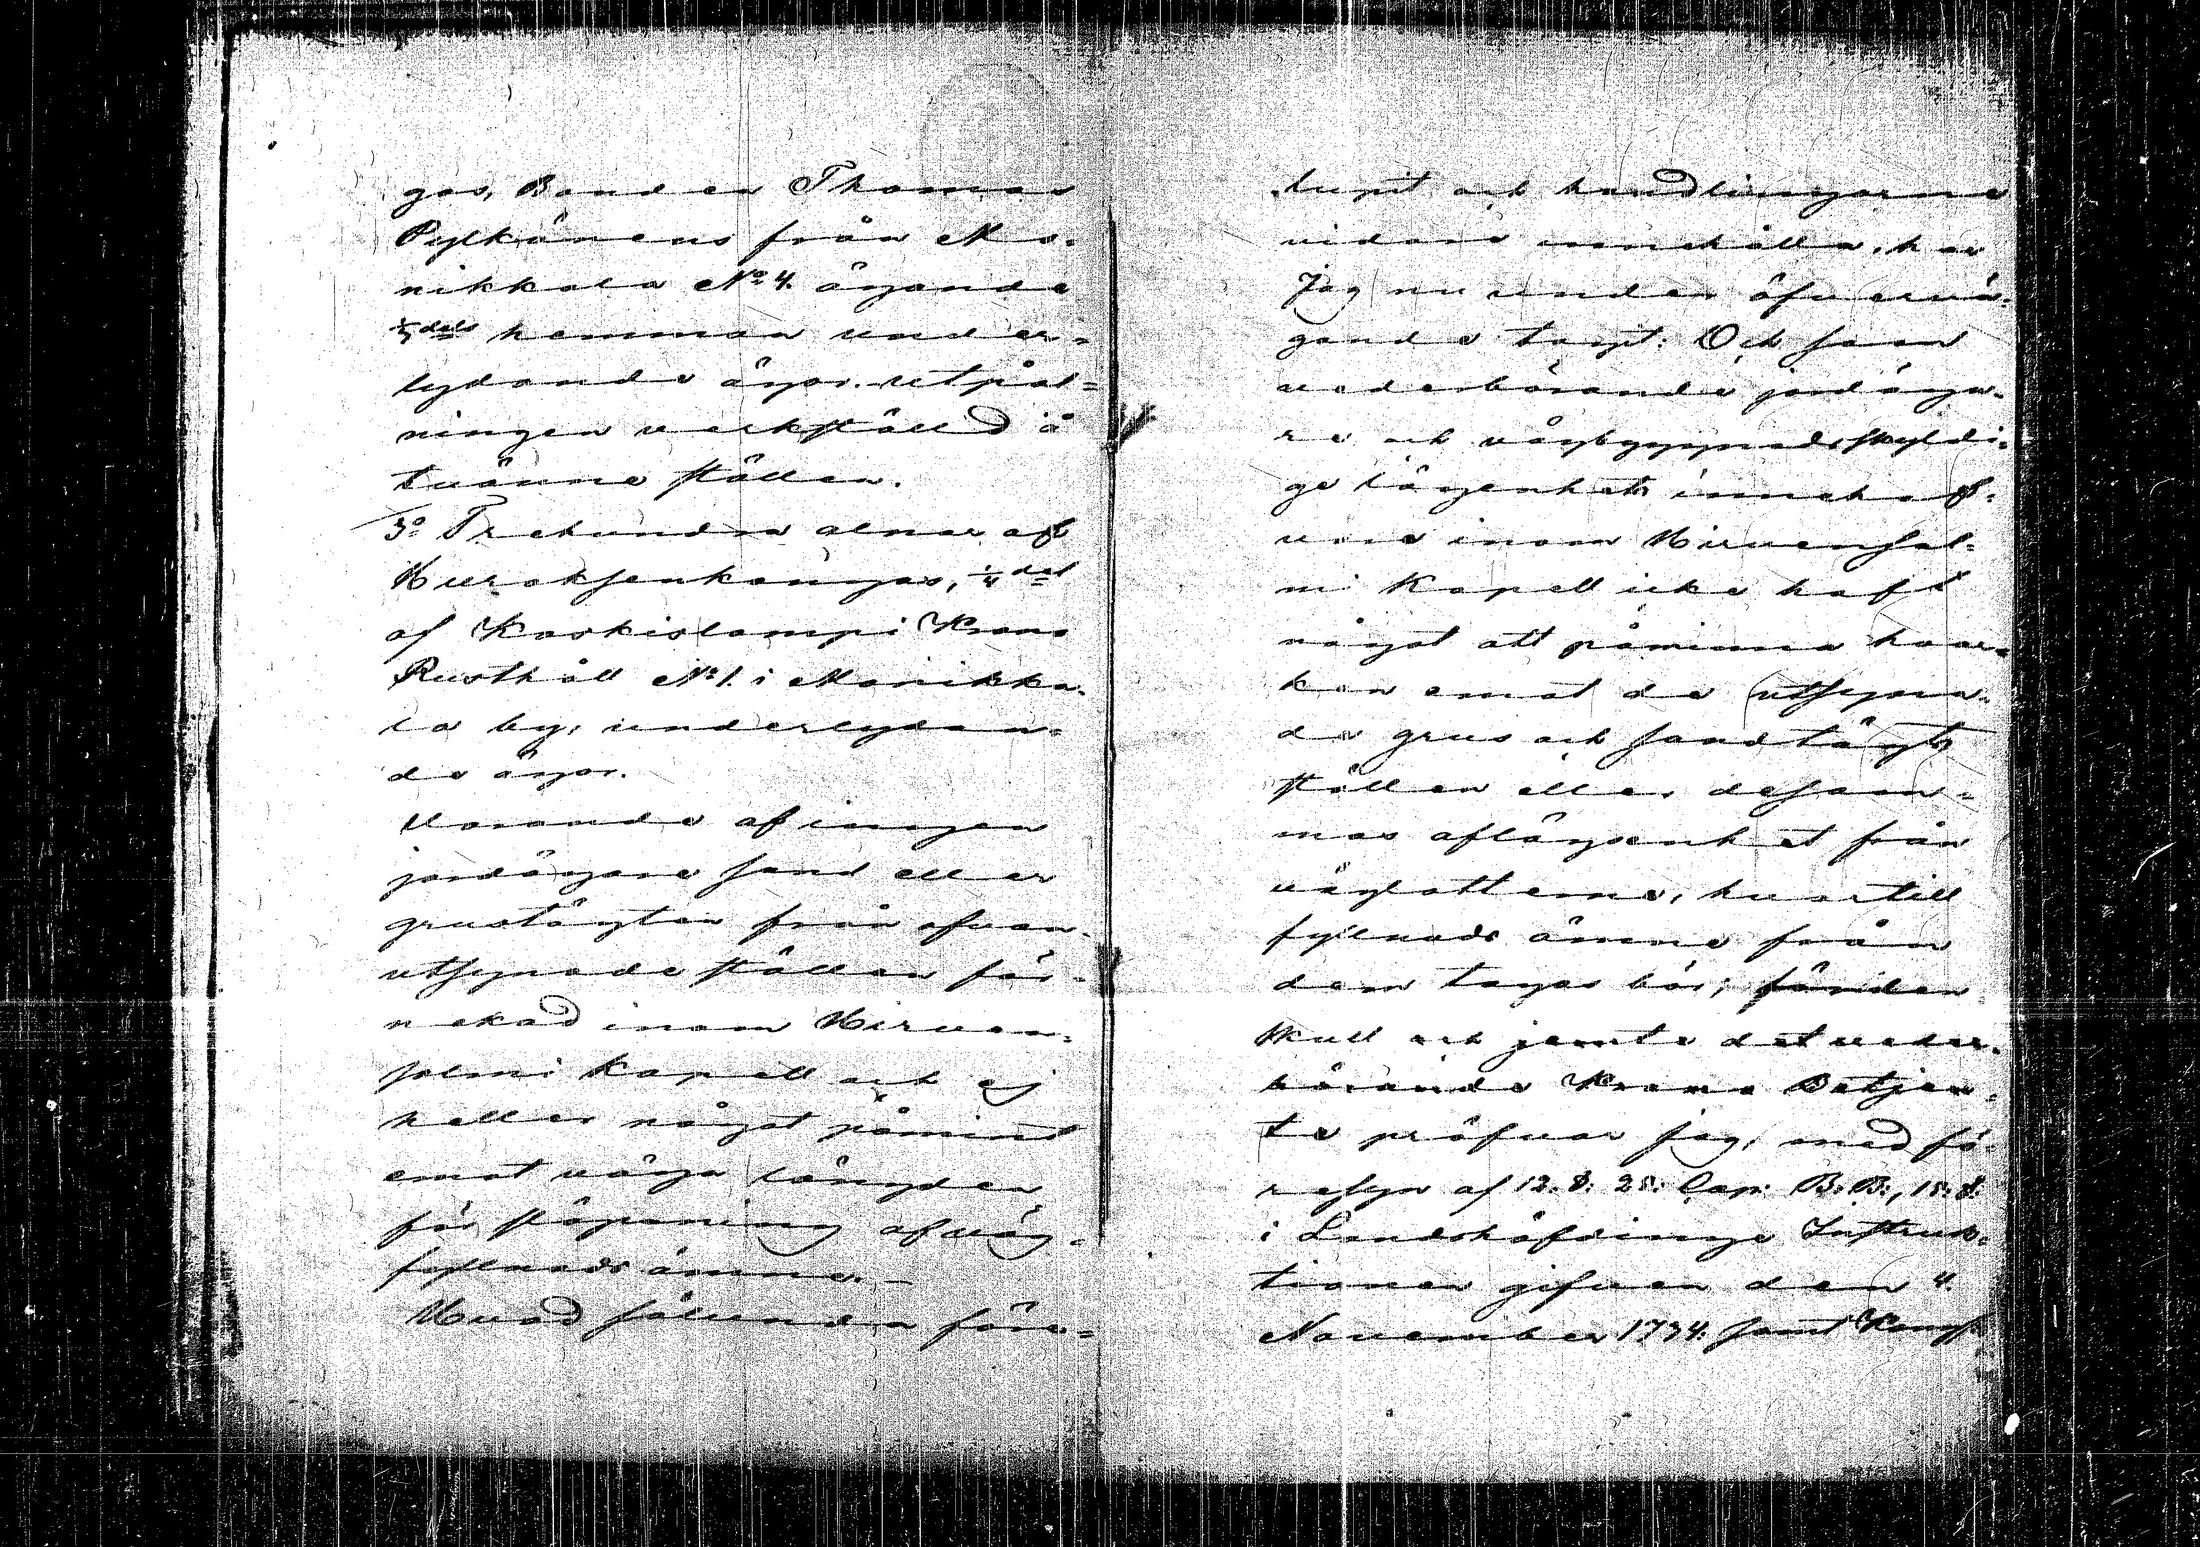 gas, Bonden Thomas
Pylkänens från Mo-
nikkala No 4. ägande
1/3 dels hemman under-
lydande ägor. utpål-
ningen verkställd å
tvänne ställen.
3o Trehundra alnar af
Hursksenkangas, 1/4 del
af Koskislampi Krono
Rusthåll No 1. i Monikka-
la by, underlydan-
de ägor.
Varande af ingen
jordägare sand eller
grustägten från ofvan-
utsynade ställen för-
nekad inom Hirven-
salmi Kapell och ej
heller något påmint
emot väga längden
för släpning af väg-
fyllnads ämne. —
Hvad sålunda före-
lupit och handlingarne
vidare innehålla, har
Jag nu under öfvervä-
gande tagit: Och som
vederbörande jordäga-
re och vägbyggnadsskyldi-
ge lägenhets innehaf-
vare inom Hirvensal-
mi Kapell icke haft
något att påminna hvar-
ken emot de utsyna-
de grus och sandtägts
ställen eller dessam-
mas aflägsenhet från
väglotterne, hvartill
fyllnads ämne från
dem tagas bör; förden-
skull och jemte det veder-
börande Krono Betjen-
te pröfvar jag, med fö-
resyn af 12. §. 25. Cap: B. B:, 15. §.
i Landshöfdinge Instruk-
tionen gifven den 4.
November 1734. samt Kongl.